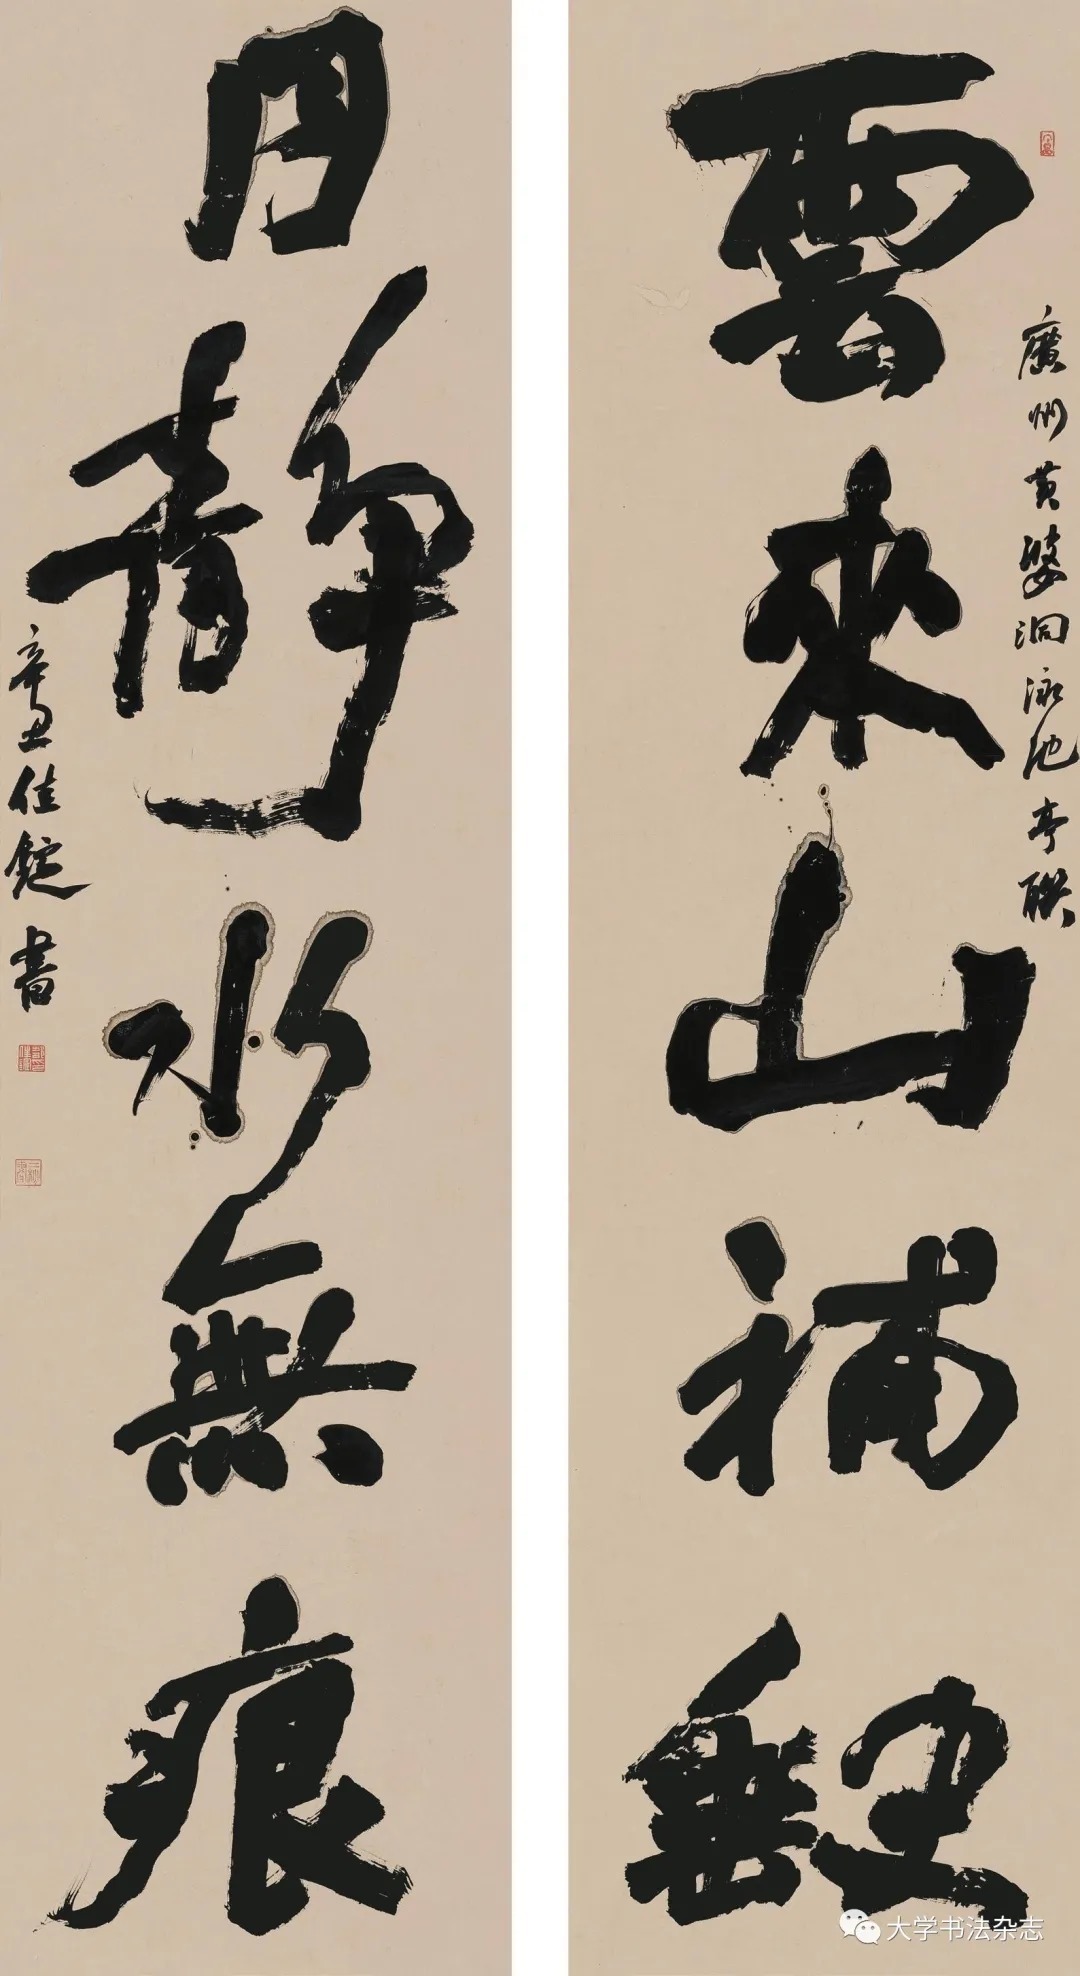 雲來山補缺
廣州黄婆洞泳池亭聯
月靜水無痕
辛丑佳錠書
大学书法杂志